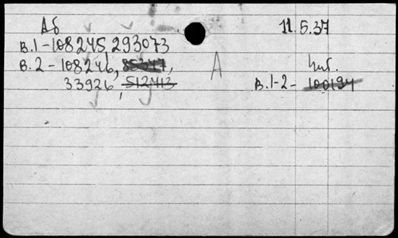 Аб
11.5.37
в.1-108245, 293073
в.2-108246, 85347,
А
33926, 512413
Чит.
в.1-2- 100194